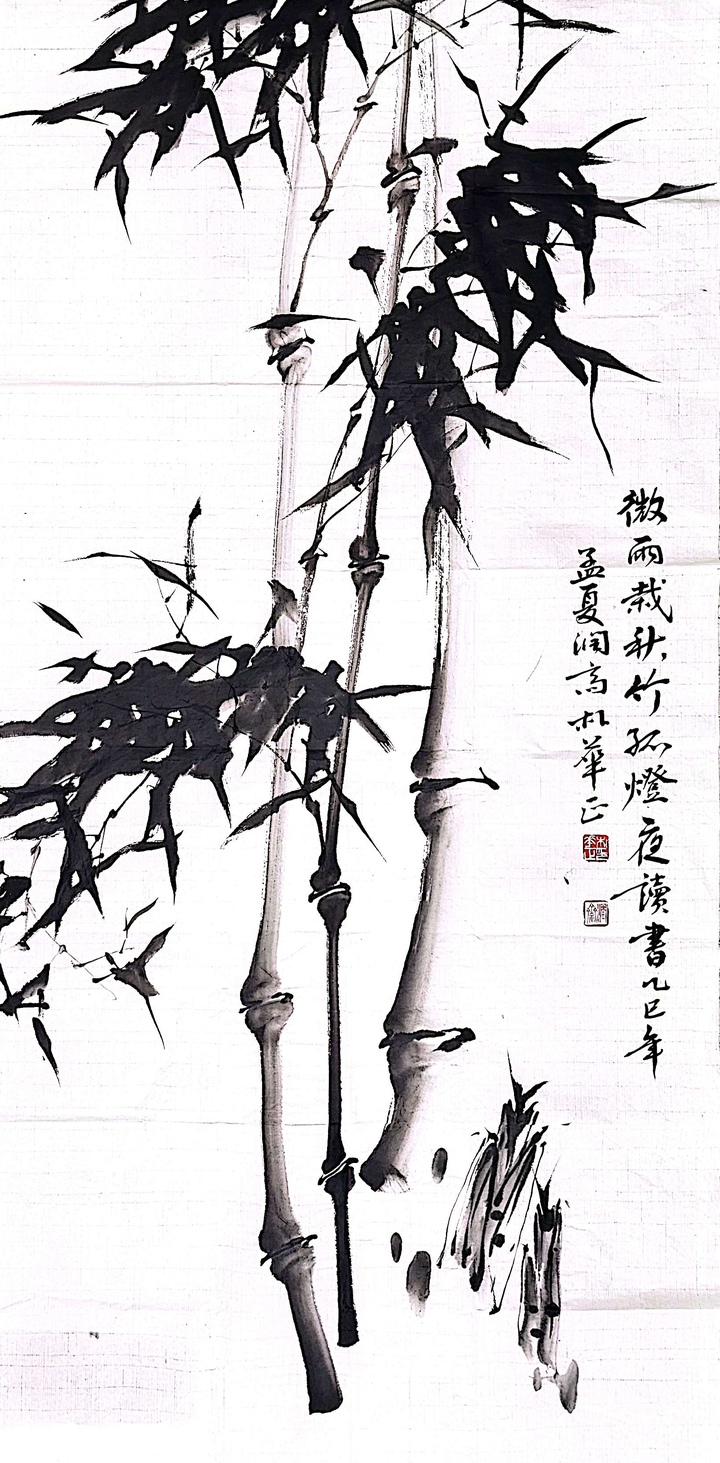 微雨栽秋竹孤燈夜讀書乙巳年
孟夏润高於華正